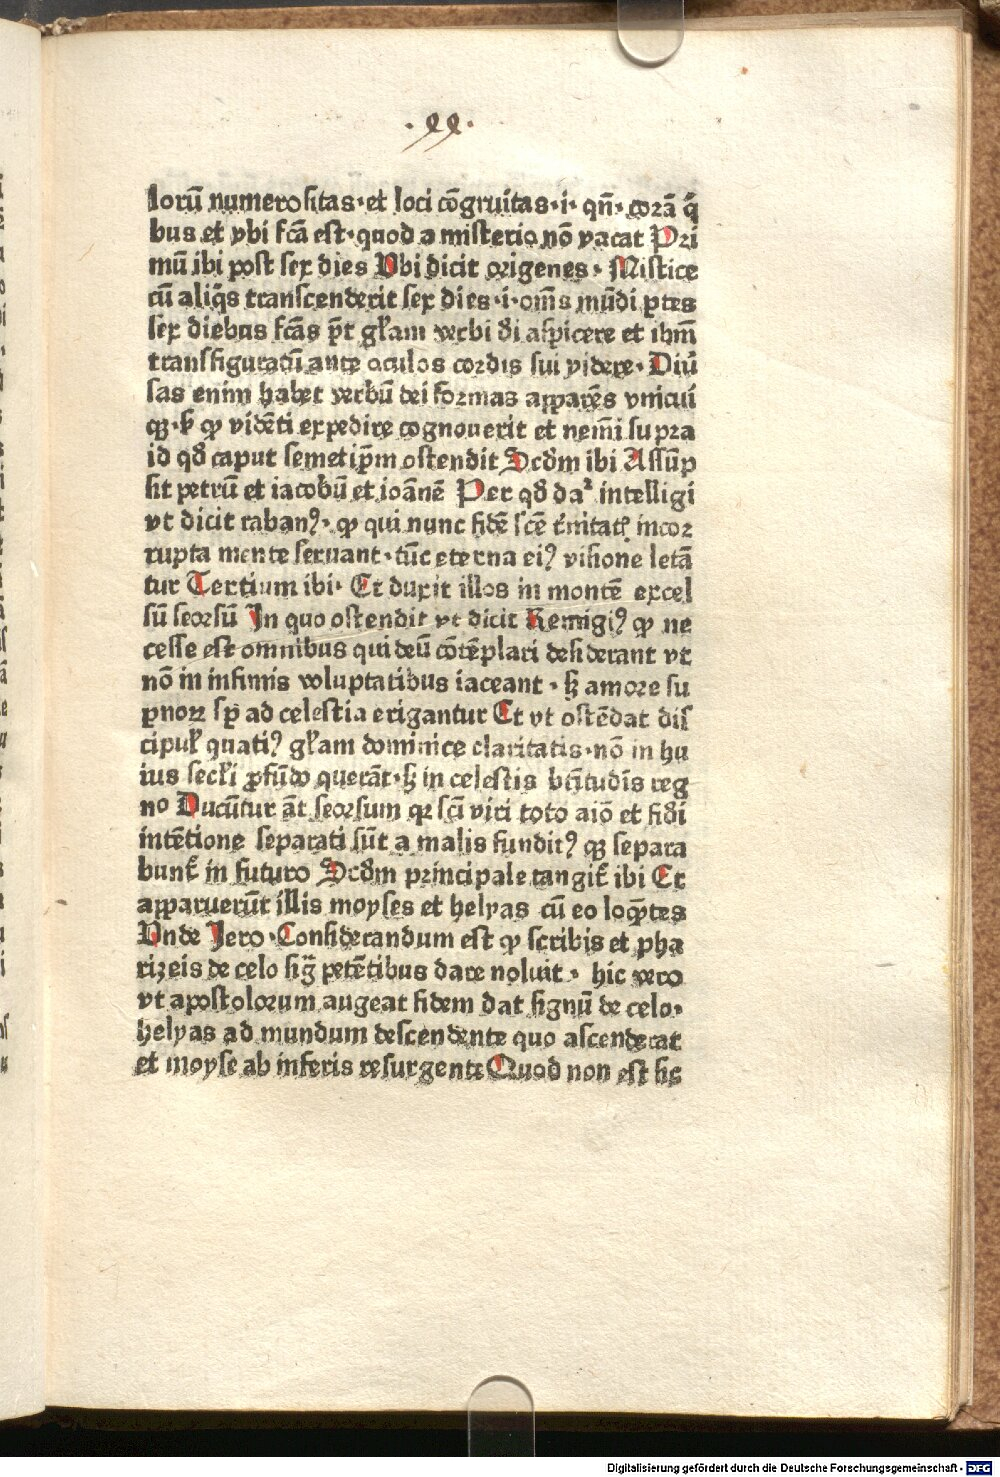 ·xx·
lorū numerositas·et loci cōgruitas·i·qn̄·corā q̄
bus et vbi fcā est·quod a misterio nō vacat Pri
mū ibi post sex dies Vbi dicit origenes· Mistice
cū aliq̄s transcenderit sex dies·i·om̄s mūdi ptes
sex diebus fcās pr̄t gl̄am verbi di aspicere et ihm̄
transfiguratū ante oculos cordis sui videre· Diū
sas enim habet verbū dei formas apparēs vnicui
qꝫ·ẜ ꝙ vidēti expedire cognouerit et nem̄i supra
id qd̄ caput semetip̄m ostendit Scd̄m ibi Assūp
sit petrū et iacobū et ioānē Per qd̄ daʳ intelligi
vt dicit rabanꝰ· ꝙ qui nunc fidē scē t̄nitatꝭ incor
rupta mente seruant·tūc eterna eiꝰ visione letā
tur Tertium ibi· Et duxit illos in montē excel
sū seorsū In quo ostendit vt dicit Remigiꝰ ꝙ ne
cesse est omnibus qui deū cōtēplari desiderant vt
nō in infimis voluptatibus iaceant · sꝫ amore su
ꝑnoꝝ sp̄ ad celestia erigantur Et vt ostēdat dis
cipul̄ quatiꝰ gl̄am dominice claritatis·nō in hu
ius secl̄i ꝓfūdo querāt·sꝫ in celestis btītudīs reg
no Ducūtur āt seorsum qꝛ scī viri toto aīo et fidi
intētione separati sūt a malis funditꝰ qꝫ separa
bunt᷑ in futuro Scd̄m principale tangit᷑ ibi Et
apparuerūt illis moyses et helyas cū eo loq̄ntes
Vnde Jero·Considerandum est ꝙ scribis et pha
rizeis de celo sig̅ petētibus dare noluit· hic vero
vt apostolorum augeat fidem dat signū de celo·
helyas ad mundum descendente quo ascenderat
et moyse ab inferis resurgente Quod non est sic
Digitalisierung gefördert durch die Deutsche Forschungsgemeinschaft - DFG